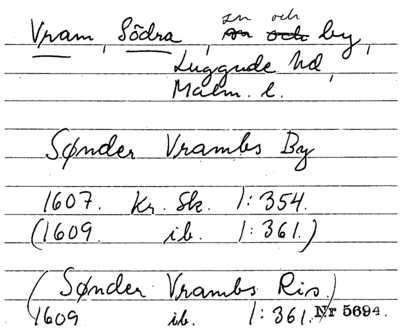 sn och
Vram, Södra, sn och by,
Luggude hd,
Malm. l.
Sønder Vrambs By
1607. Kr. Sk. 1:354.
(1609. ib. 1:361.)
(Sønder Vrambs Ris.)
1609 ib. 1:361. Nr 5694.